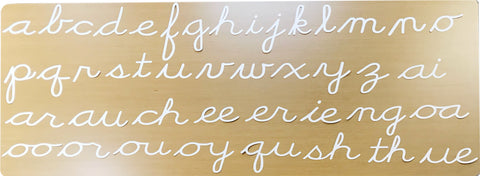 a b c d e f g h i j k l m n o
p q r s t u v w x y z ai
ar au ch ee er ie ng oa
oo or ou oy qu sh th ue